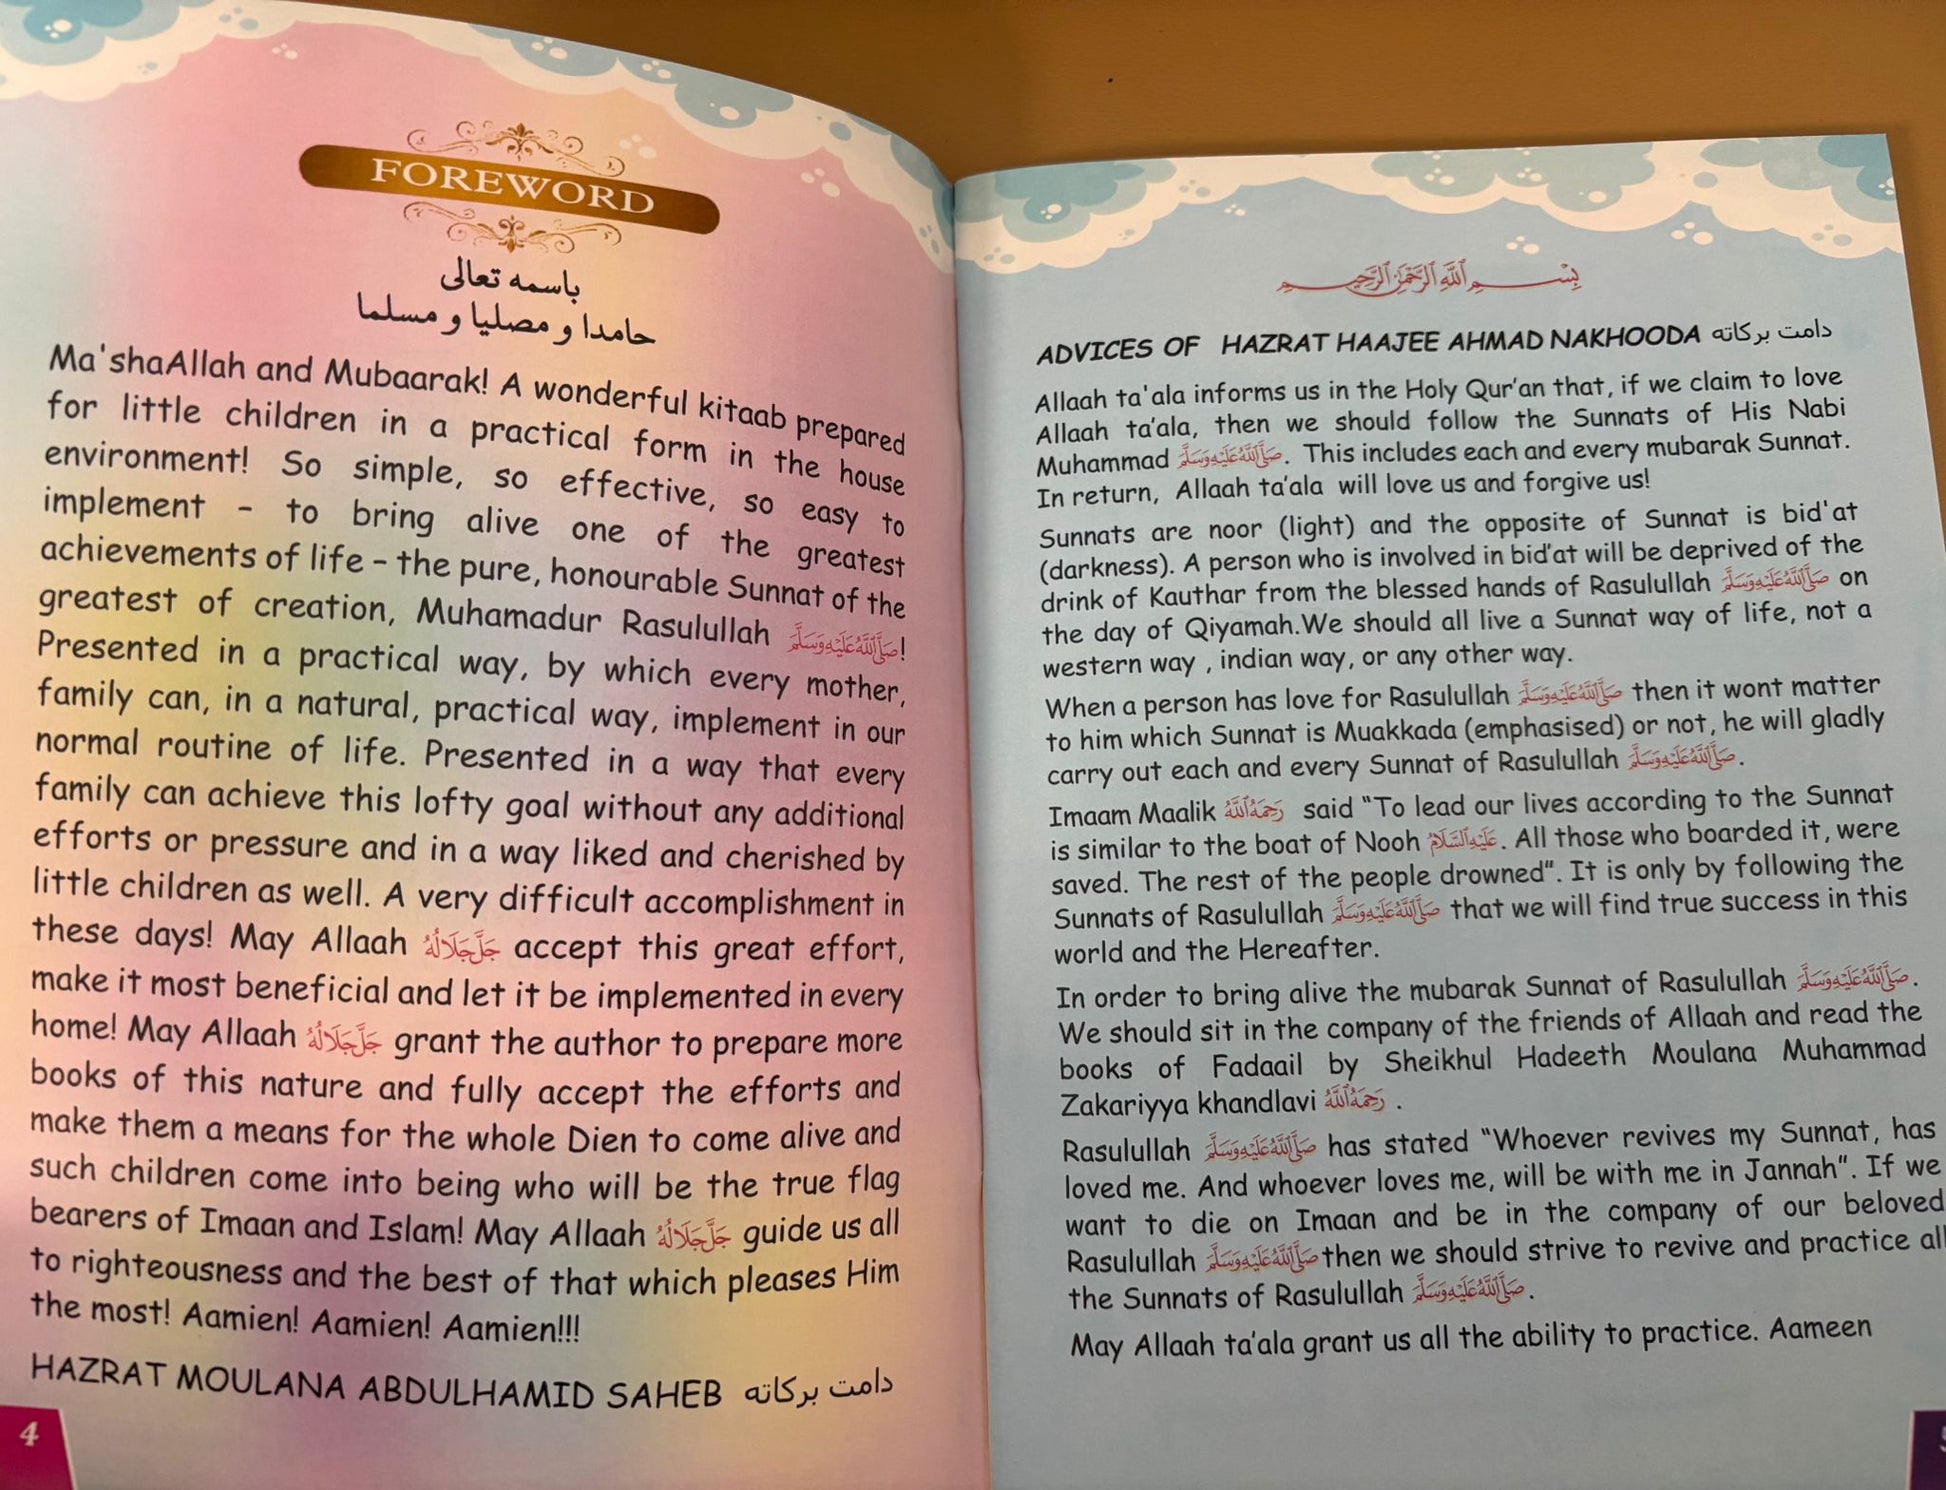 FOREWORD
باسمه تعالى
حامدا و مصليا و مسلما
Ma'shaAllah and Mubaarak! A wonderful kitaab prepared
for little children in a practical form in the house
environment! So simple, so effective, so easy to
implement – to bring alive one of the greatest
achievements of life – the pure, honourable Sunnat of the
greatest of creation, Muhamadur Rasulullah صَلَّى اللَّهُ عَلَيْهِ وَسَلَّمَ!
Presented in a practical way, by which every mother,
family can, in a natural, practical way, implement in our
normal routine of life. Presented in a way that every
family can achieve this lofty goal without any additional
efforts or pressure and in a way liked and cherished by
little children as well. A very difficult accomplishment in
these days! May Allaah جَلَّ جَلَالُهُ accept this great effort,
make it most beneficial and let it be implemented in every
home! May Allaah جَلَّ جَلَالُهُ grant the author to prepare more
books of this nature and fully accept the efforts and
make them a means for the whole Dien to come alive and
such children come into being who will be the true flag
bearers of Imaan and Islam! May Allaah جَلَّ جَلَالُهُ guide us all
to righteousness and the best of that which pleases Him
the most! Aamien! Aamien! Aamien!!!
HAZRAT MOULANA ABDULHAMID SAHEB دامت بركاته
4
بِسْمِ اللَّهِ الرَّحْمَٰنِ الرَّحِيمِ
ADVICES OF HAZRAT HAAJEE AHMAD NAKHOODA دامت بركاته
Allaah ta'ala informs us in the Holy Qur'an that, if we claim to love
Allaah ta'ala, then we should follow the Sunnats of His Nabi
Muhammad صَلَّى اللَّهُ عَلَيْهِ وَسَلَّمَ. This includes each and every mubarak Sunnat.
In return, Allaah ta'ala will love us and forgive us!
Sunnats are noor (light) and the opposite of Sunnat is bid'at
(darkness). A person who is involved in bid'at will be deprived of the
drink of Kauthar from the blessed hands of Rasulullah صَلَّى اللَّهُ عَلَيْهِ وَسَلَّمَ on
the day of Qiyamah.We should all live a Sunnat way of life, not a
western way , indian way, or any other way.
When a person has love for Rasulullah صَلَّى اللَّهُ عَلَيْهِ وَسَلَّمَ then it wont matter
to him which Sunnat is Muakkada (emphasised) or not, he will gladly
carry out each and every Sunnat of Rasulullah صَلَّى اللَّهُ عَلَيْهِ وَسَلَّمَ.
Imaam Maalik رَحِمَهُ اللَّهُ said "To lead our lives according to the Sunnat
is similar to the boat of Nooh عَلَيْهِ السَّلَامُ. All those who boarded it, were
saved. The rest of the people drowned". It is only by following the
Sunnats of Rasulullah صَلَّى اللَّهُ عَلَيْهِ وَسَلَّمَ that we will find true success in this
world and the Hereafter.
In order to bring alive the mubarak Sunnat of Rasulullah صَلَّى اللَّهُ عَلَيْهِ وَسَلَّمَ.
We should sit in the company of the friends of Allaah and read the
books of Fadaail by Sheikhul Hadeeth Moulana Muhammad
Zakariyya khandlavi رَحِمَهُ اللَّهُ .
Rasulullah صَلَّى اللَّهُ عَلَيْهِ وَسَلَّمَ has stated "Whoever revives my Sunnat, has
loved me. And whoever loves me, will be with me in Jannah". If we
want to die on Imaan and be in the company of our beloved
Rasulullah صَلَّى اللَّهُ عَلَيْهِ وَسَلَّمَ then we should strive to revive and practice all
the Sunnats of Rasulullah صَلَّى اللَّهُ عَلَيْهِ وَسَلَّمَ.
May Allaah ta'ala grant us all the ability to practice. Aameen